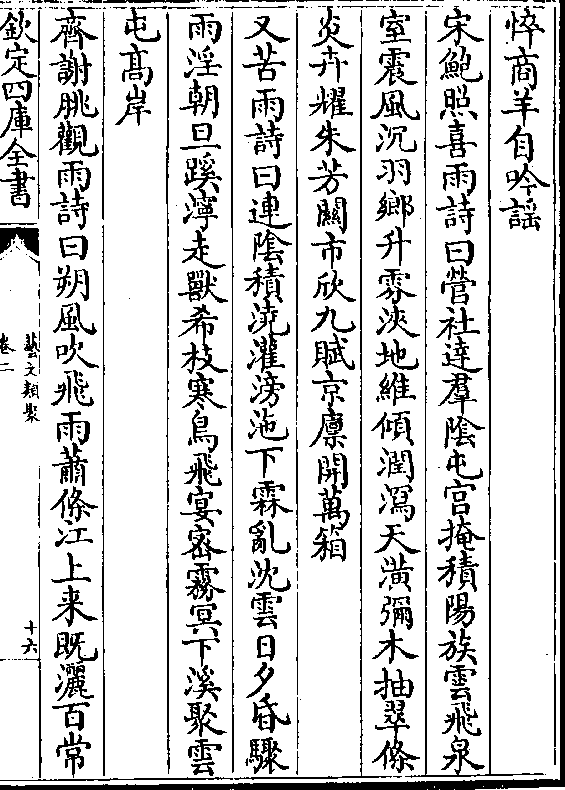 悴商羊自吟謡
宋鮑照喜雨詩曰營社達羣陰屯宫掩積陽族雲飛泉
室震風沉羽鄉升雰浹地維傾潤瀉天潢彌木抽翠條
炎卉耀朱芳關市欣九賦京廪開萬箱
又苦雨詩曰連陰積澆灌滂沲下霖亂沈雲日夕昏驟
雨淫朝旦蹊濘走獸希枝寒鳥飛宴密霧冥下溪聚雲
屯髙岸
齊謝朓觀雨詩曰朔風吹飛雨蕭條江上来既灑百常
欽定四庫全書
藝文類聚
卷二
十六